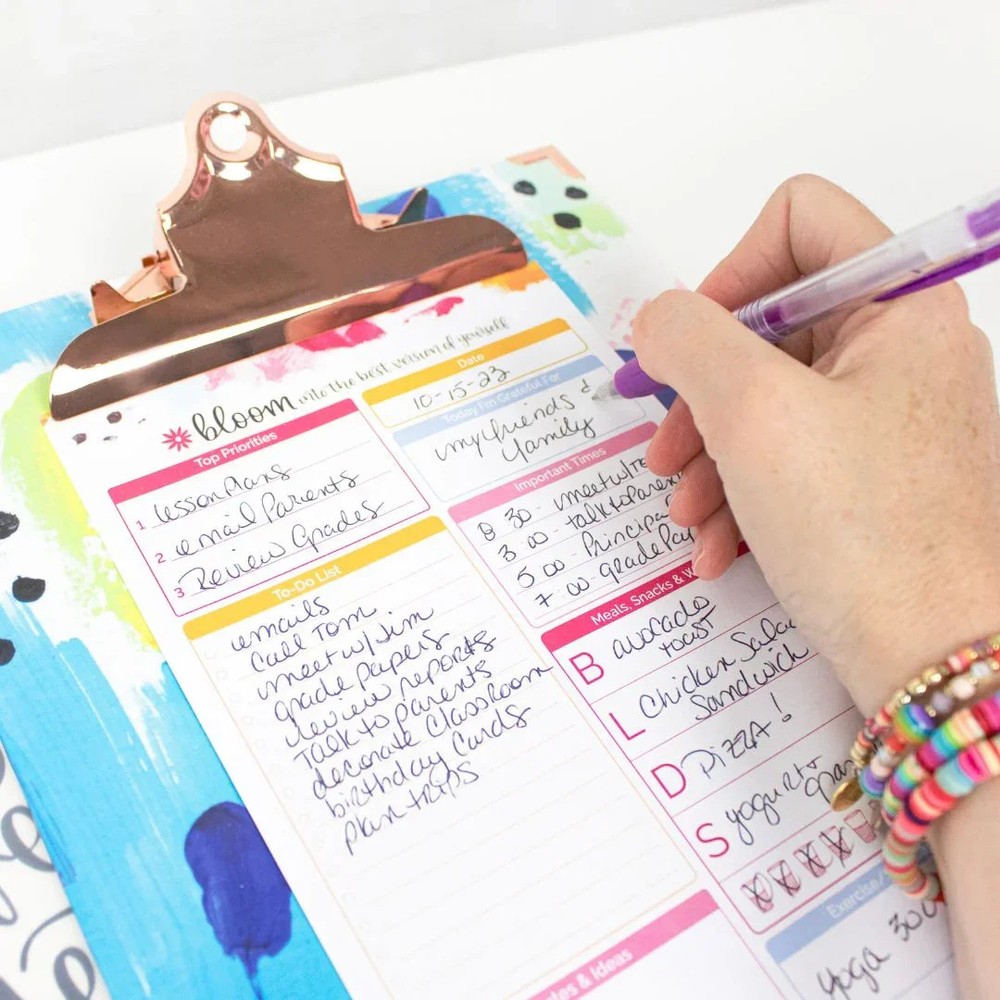 bloom into the best version of yourself
Top Priorities
1 lesson Plans
2 email Parents
3 Review Grades
To-Do List
emails
Call Tom
meet w/ Jim
grade papers
review reports
Talk to Parents
decorate Classroom
birthday Cards
plan trips
Date
10-15-23
Today I'm Grateful For
my friends &
family
Important Times
8 30 - meet w/
3 00 - talk to
5 00 - Principal
7 00 - grade
Meals, Snacks &
B avocado
toast
L Chicken
Sandwich
D PIZZA!
S yogurt
Exercise/
yoga 30
& Ideas